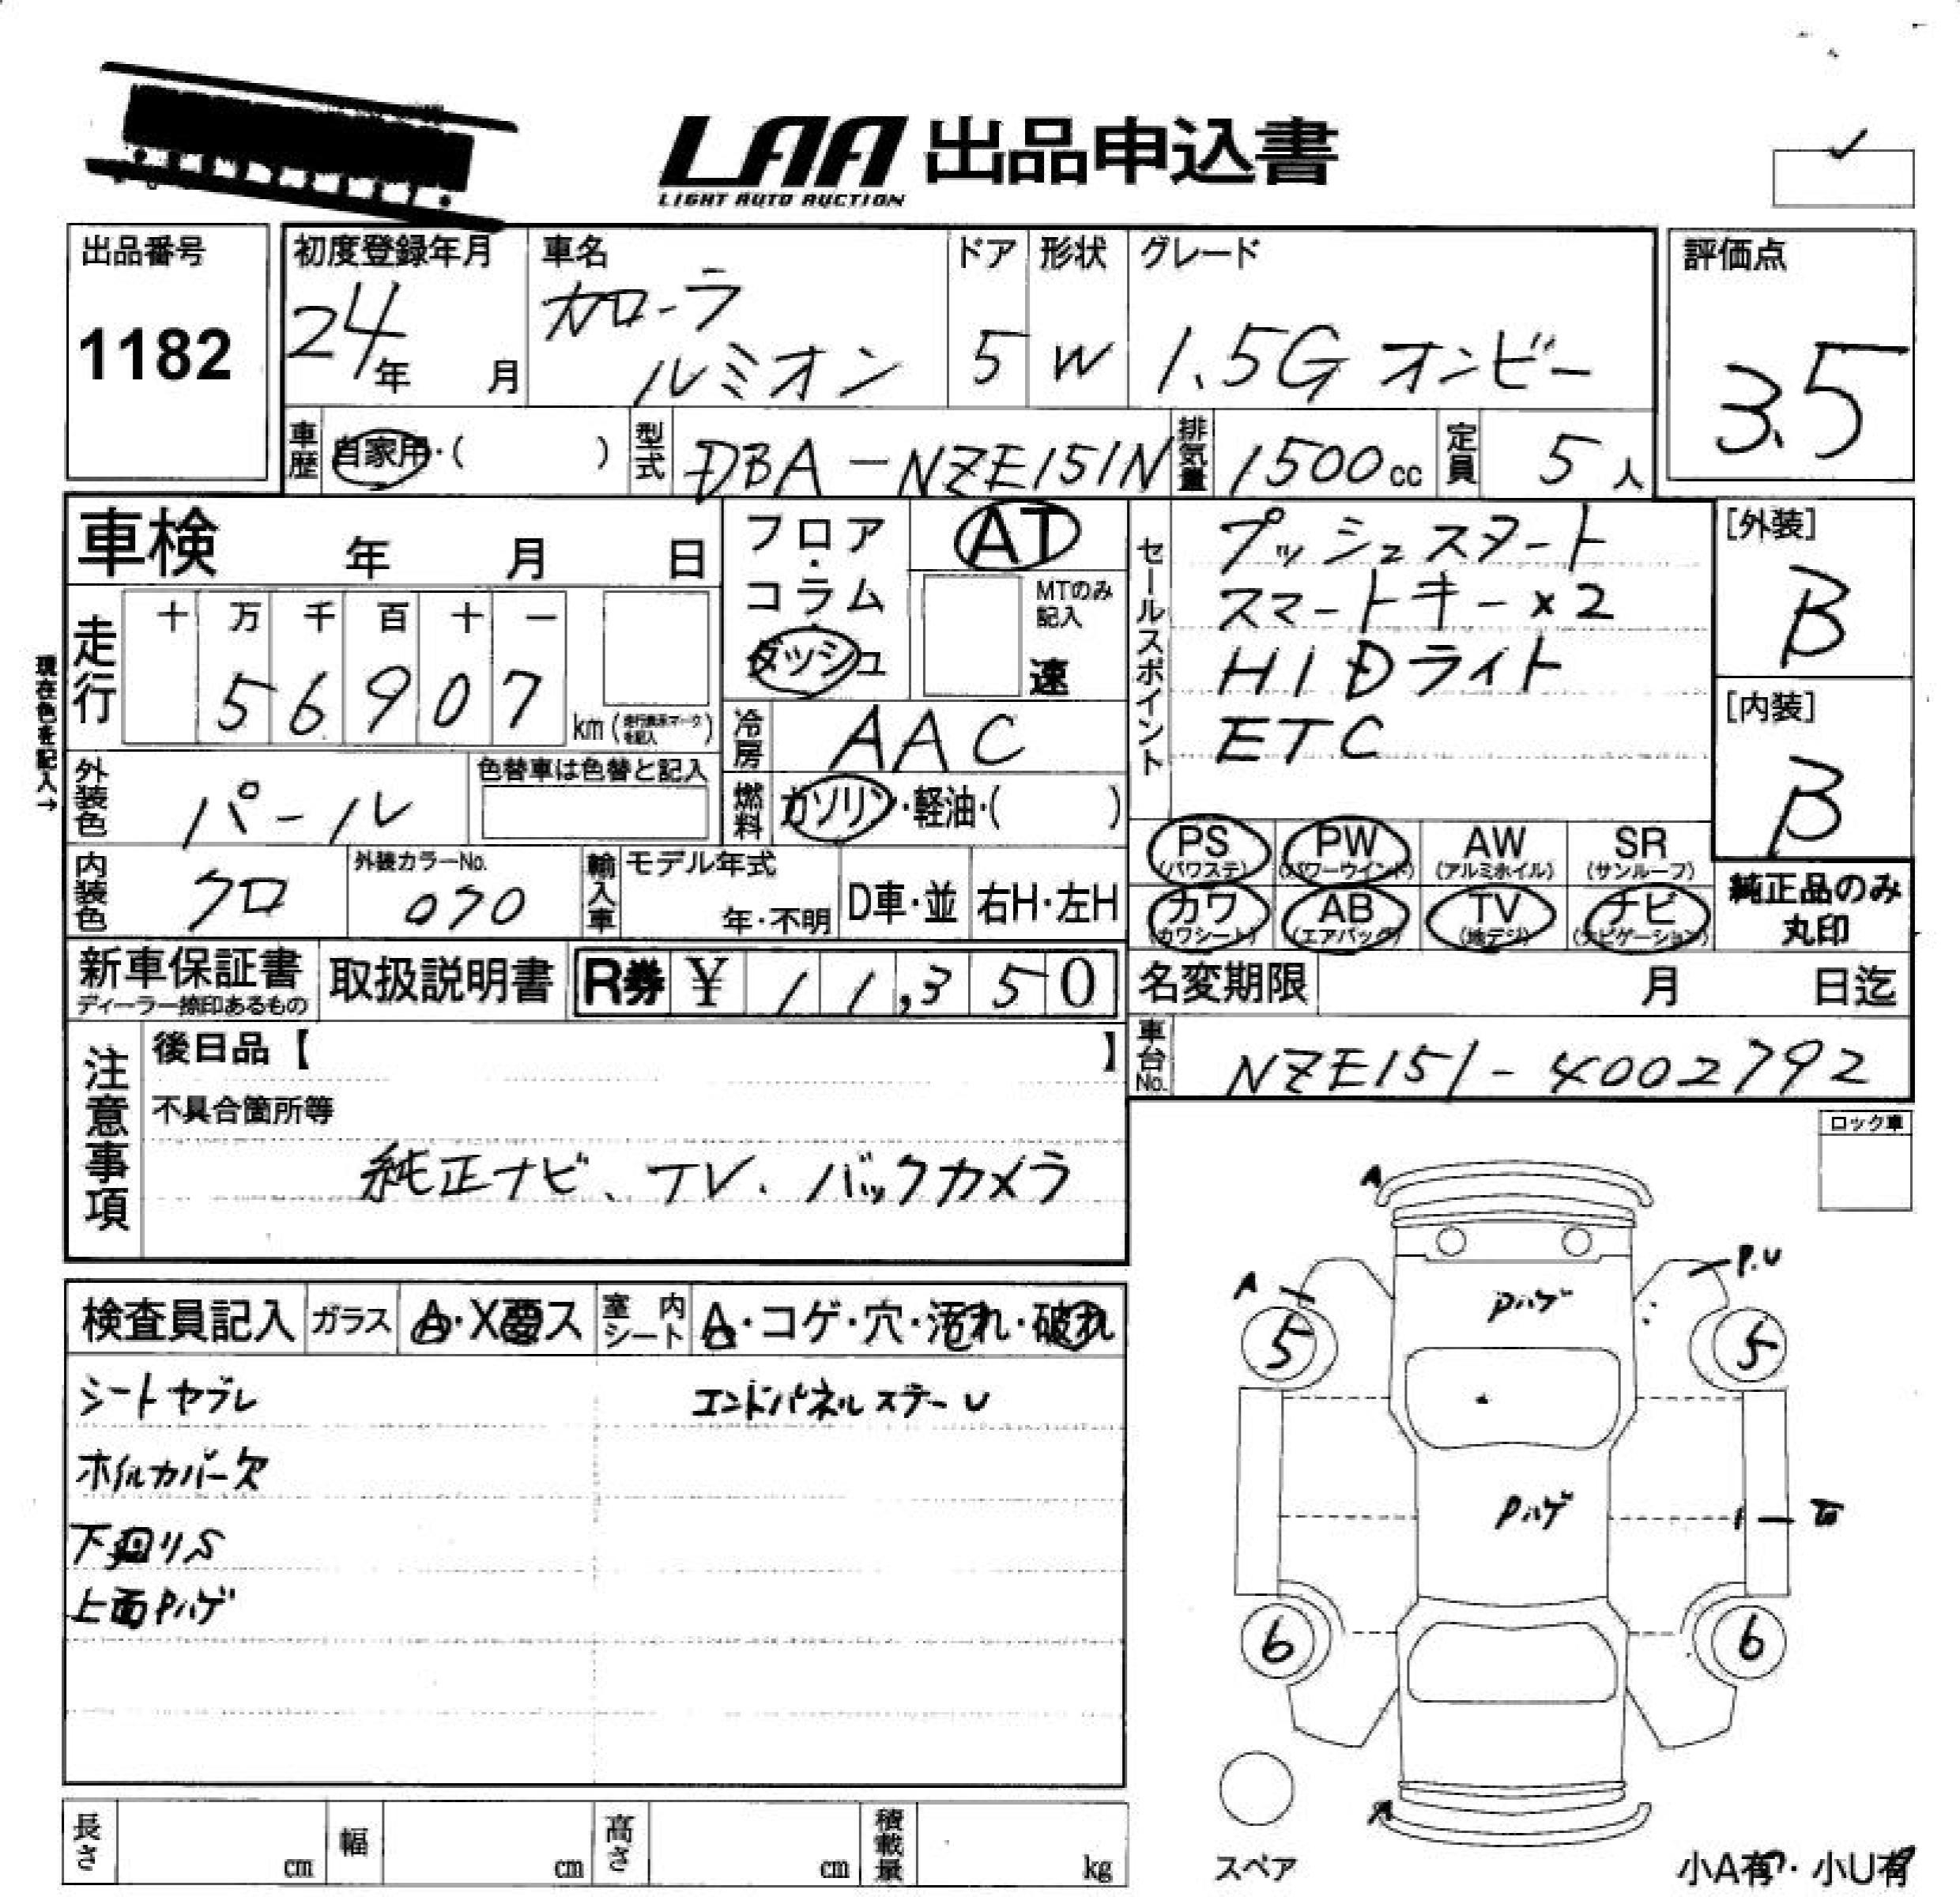 LAA 出品申込書
LIGHT AUTO AUCTION
出品番号
1182
初度登録年月
24年 月
車名
カローラ
ルミオン
ドア
5
形状
W
グレード
1.5G オンビー
評価点
3.5
車歴 自家用・( )
型式 DBA-NZE151N
排気量 1500cc
定員 5人
車検 年 月 日
フロア・コラム
ダッシュ
AT
MTのみ記入
速
セールスポイント
プッシュスタート
スマートキー×2
HIDライト
ETC
[外装]
B
[内装]
B
現在色を記入→
走行
十 万 千 百 十 一
5 6 9 0 7
km (走行表示マークを記入)
冷房 AAC
外装色 パール
色替車は色替と記入
燃料 ガソリン・軽油・( )
内装色 クロ
外装カラーNo.
070
輸入車
モデル年式
年・不明
D車・並
右H・左H
PS (パワステ)
PW (パワーウインド)
AW (アルミホイル)
SR (サンルーフ)
カワ (カワシート)
AB (エアバッグ)
TV (地デジ)
ナビ (ナビゲーション)
純正品のみ
丸印
新車保証書
ディーラー捺印あるもの
取扱説明書
R券 ¥ 11,350
名変期限 月 日迄
車台No. NZE151-4002792
注意事項
後日品【 】
不具合箇所等
純正ナビ、TV、バックカメラ
ロック車
検査員記入
ガラス A・X要ス
室内シート A・コゲ・穴・汚れ・破れ
シートヤブレ
エンドパネルステーU
ホイルカバー欠
下回りS
上面Pハゲ
A
A
P.U
Pハゲ
5
5
Pハゲ
6
6
A
スペア
小A有・小U有
長さ cm
幅 cm
高さ cm
積載量 kg